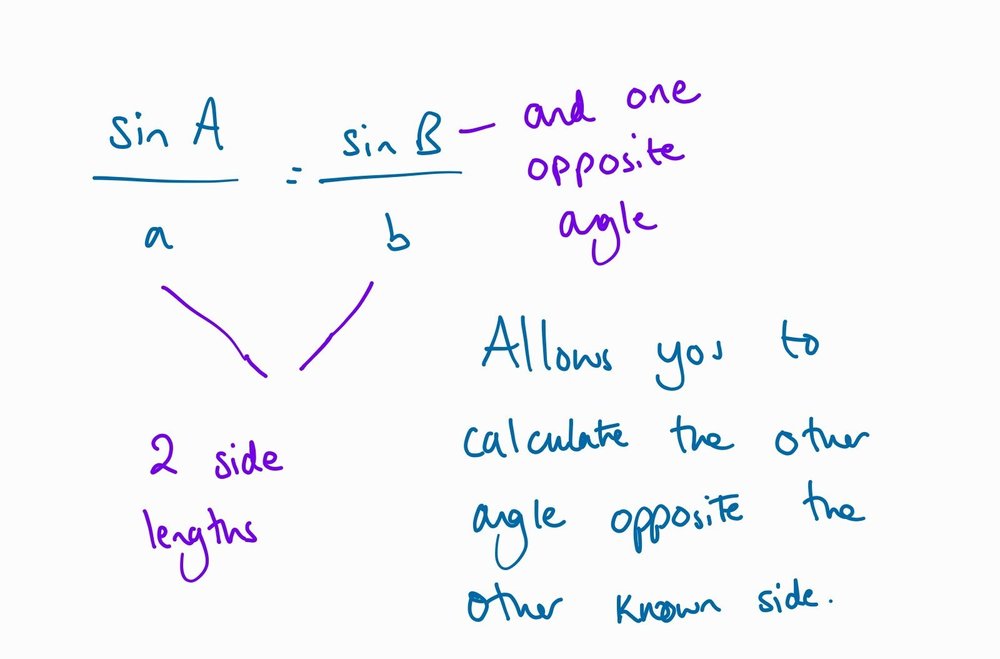 sin A / a = sin B / b
— and one
opposite
angle
2 side
lengths
Allows you to
calculate the other
angle opposite the
other known side.